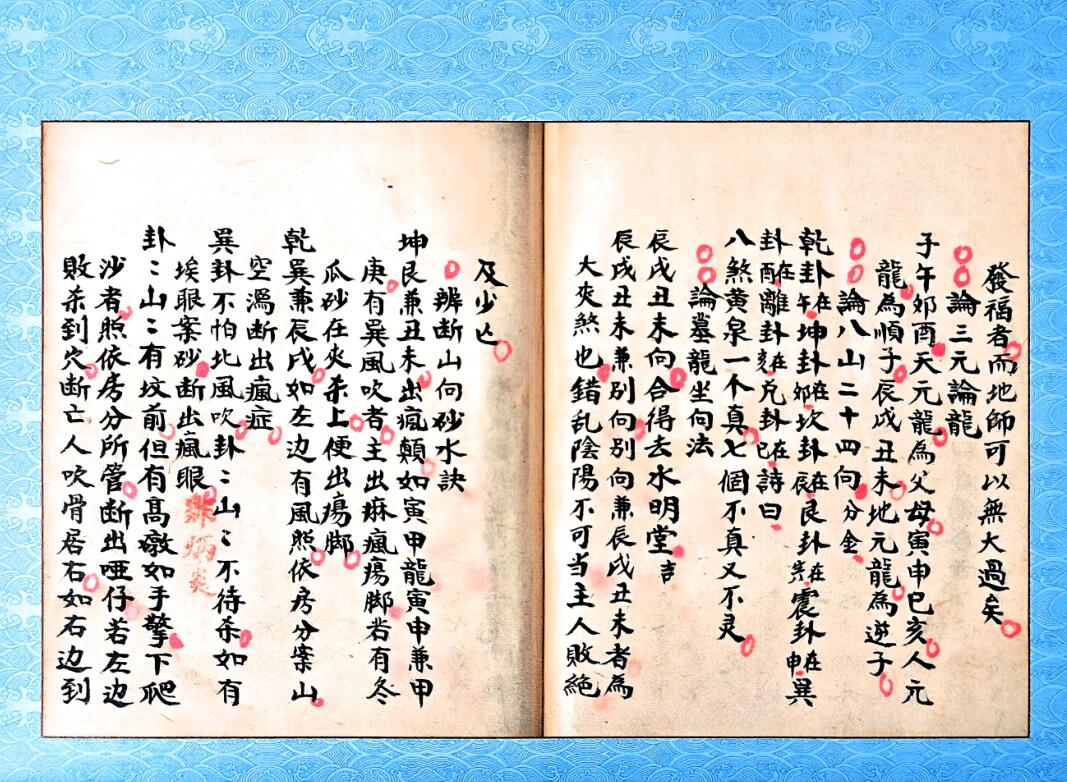 發福者而地師可以無大過矣
論三元論龍
子午卯酉天元龍為父母寅申巳亥人元
龍為順子辰戌丑未地元龍為逆子
論八山二十四向分金
乾卦在午坤卦在卯坎卦在辰艮卦在寅震卦在申巽
卦在酉離卦在亥兌卦在巳詩曰
八煞黃泉一个真七個不真又不灵
論墓龍坐向法
辰戌丑未向合得去水明堂吉
辰戌丑未兼别向别向兼辰戌丑未者為
大夾煞也錯乱陰陽不可当主人敗絕
及少亡
辨断山向砂水訣
坤艮兼丑未出瘋顛如寅甲龍寅申兼甲
庚有巽風吹者主出麻瘋瘍脚若有冬
瓜砂在夾杀上便出瘍脚
乾巽兼辰戌如左边有風照依房分案山
空漏断出瘋症
巽卦不怕北風吹卦〻山〻不待杀如有
埃眼案砂断出瘋眼
卦〻山〻有坟前但有高墩如手擎下爬
沙者照依房分所管断出啞仔若左边
敗杀到穴断亡人吹骨居右如右边到